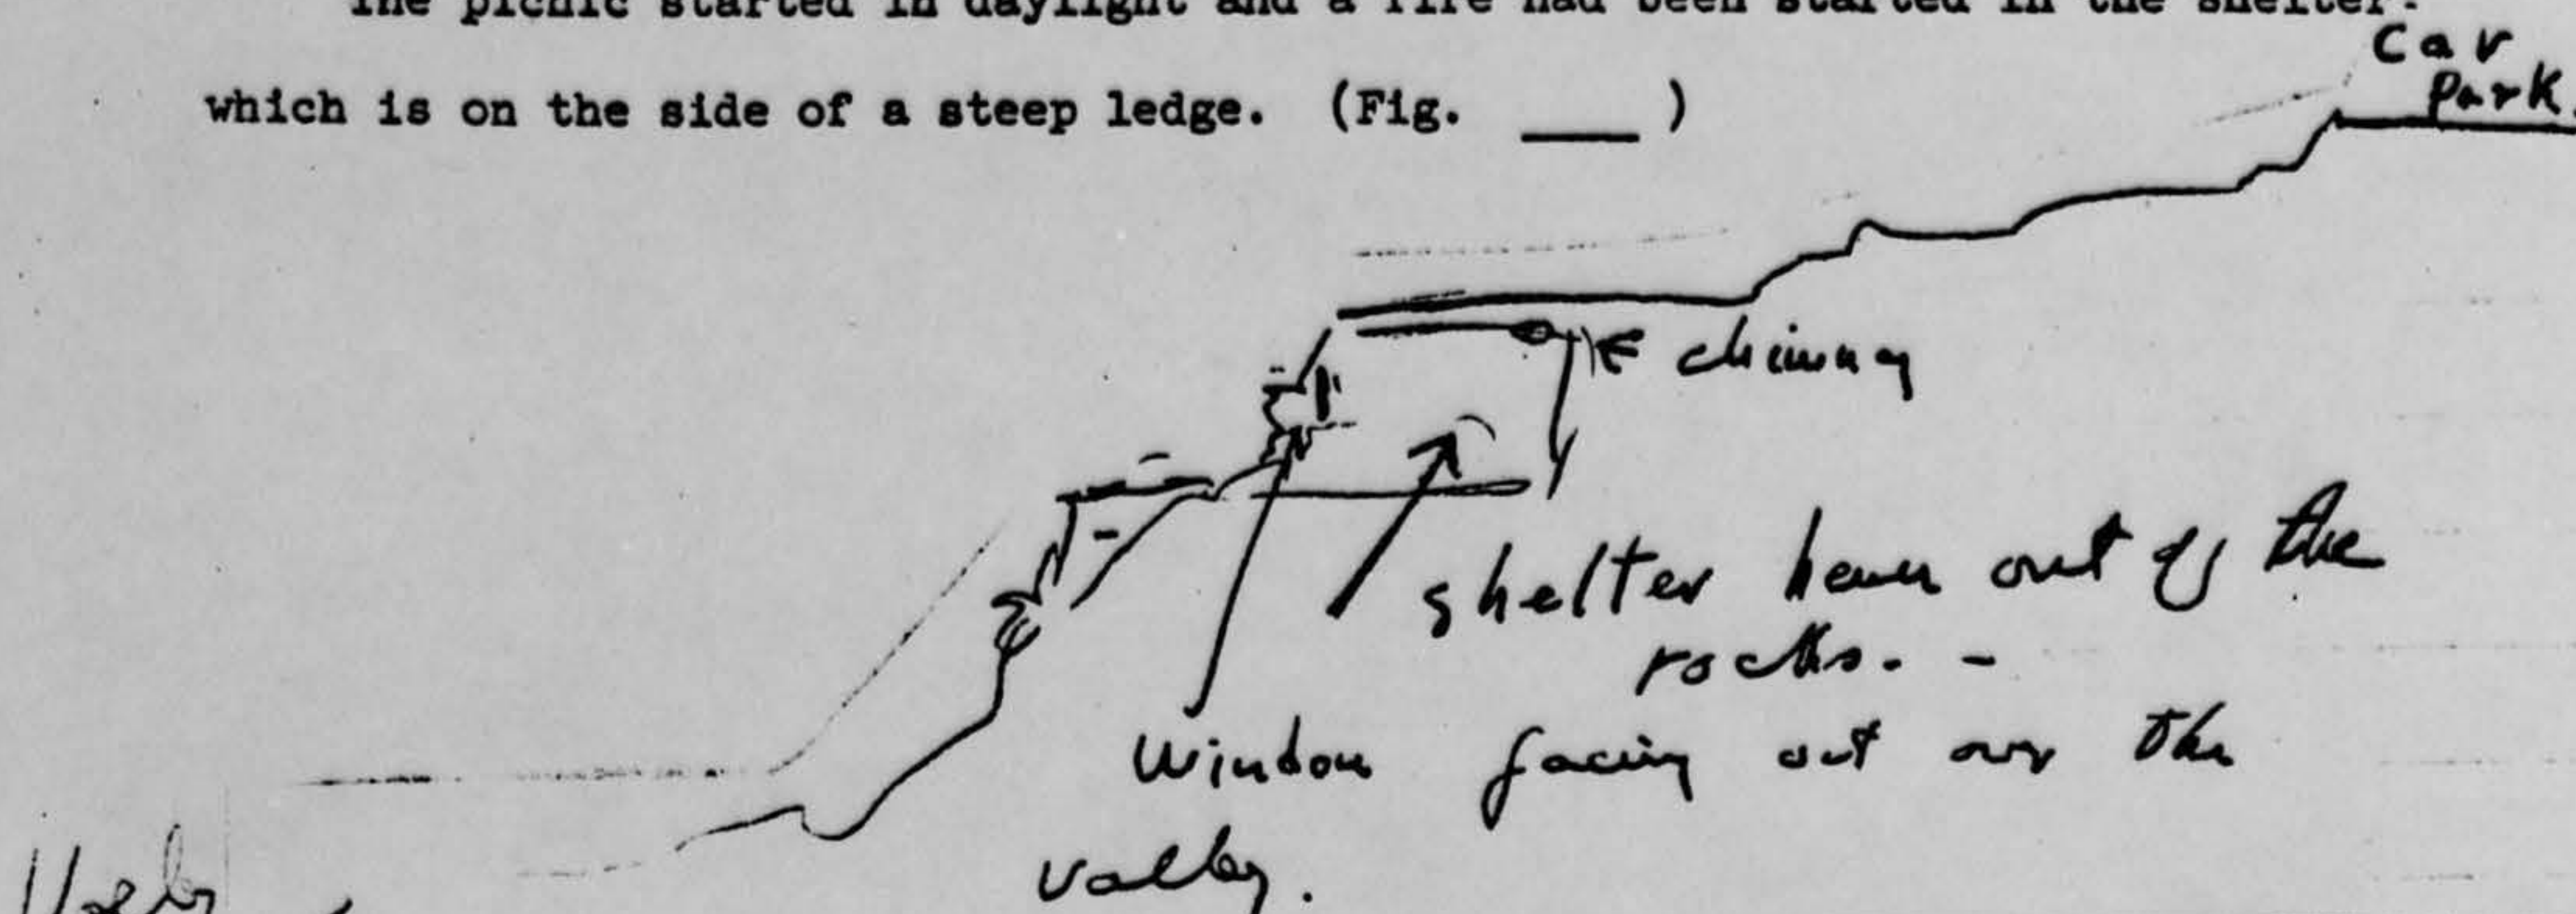 The picnic started in daylight and a fire had been started in the shelter.
which is on the side of a steep ledge. (Fig. ___ )
Car
Park.
chimney
shelter hewn out of the
rocks. -
Window facing out over the
valley.